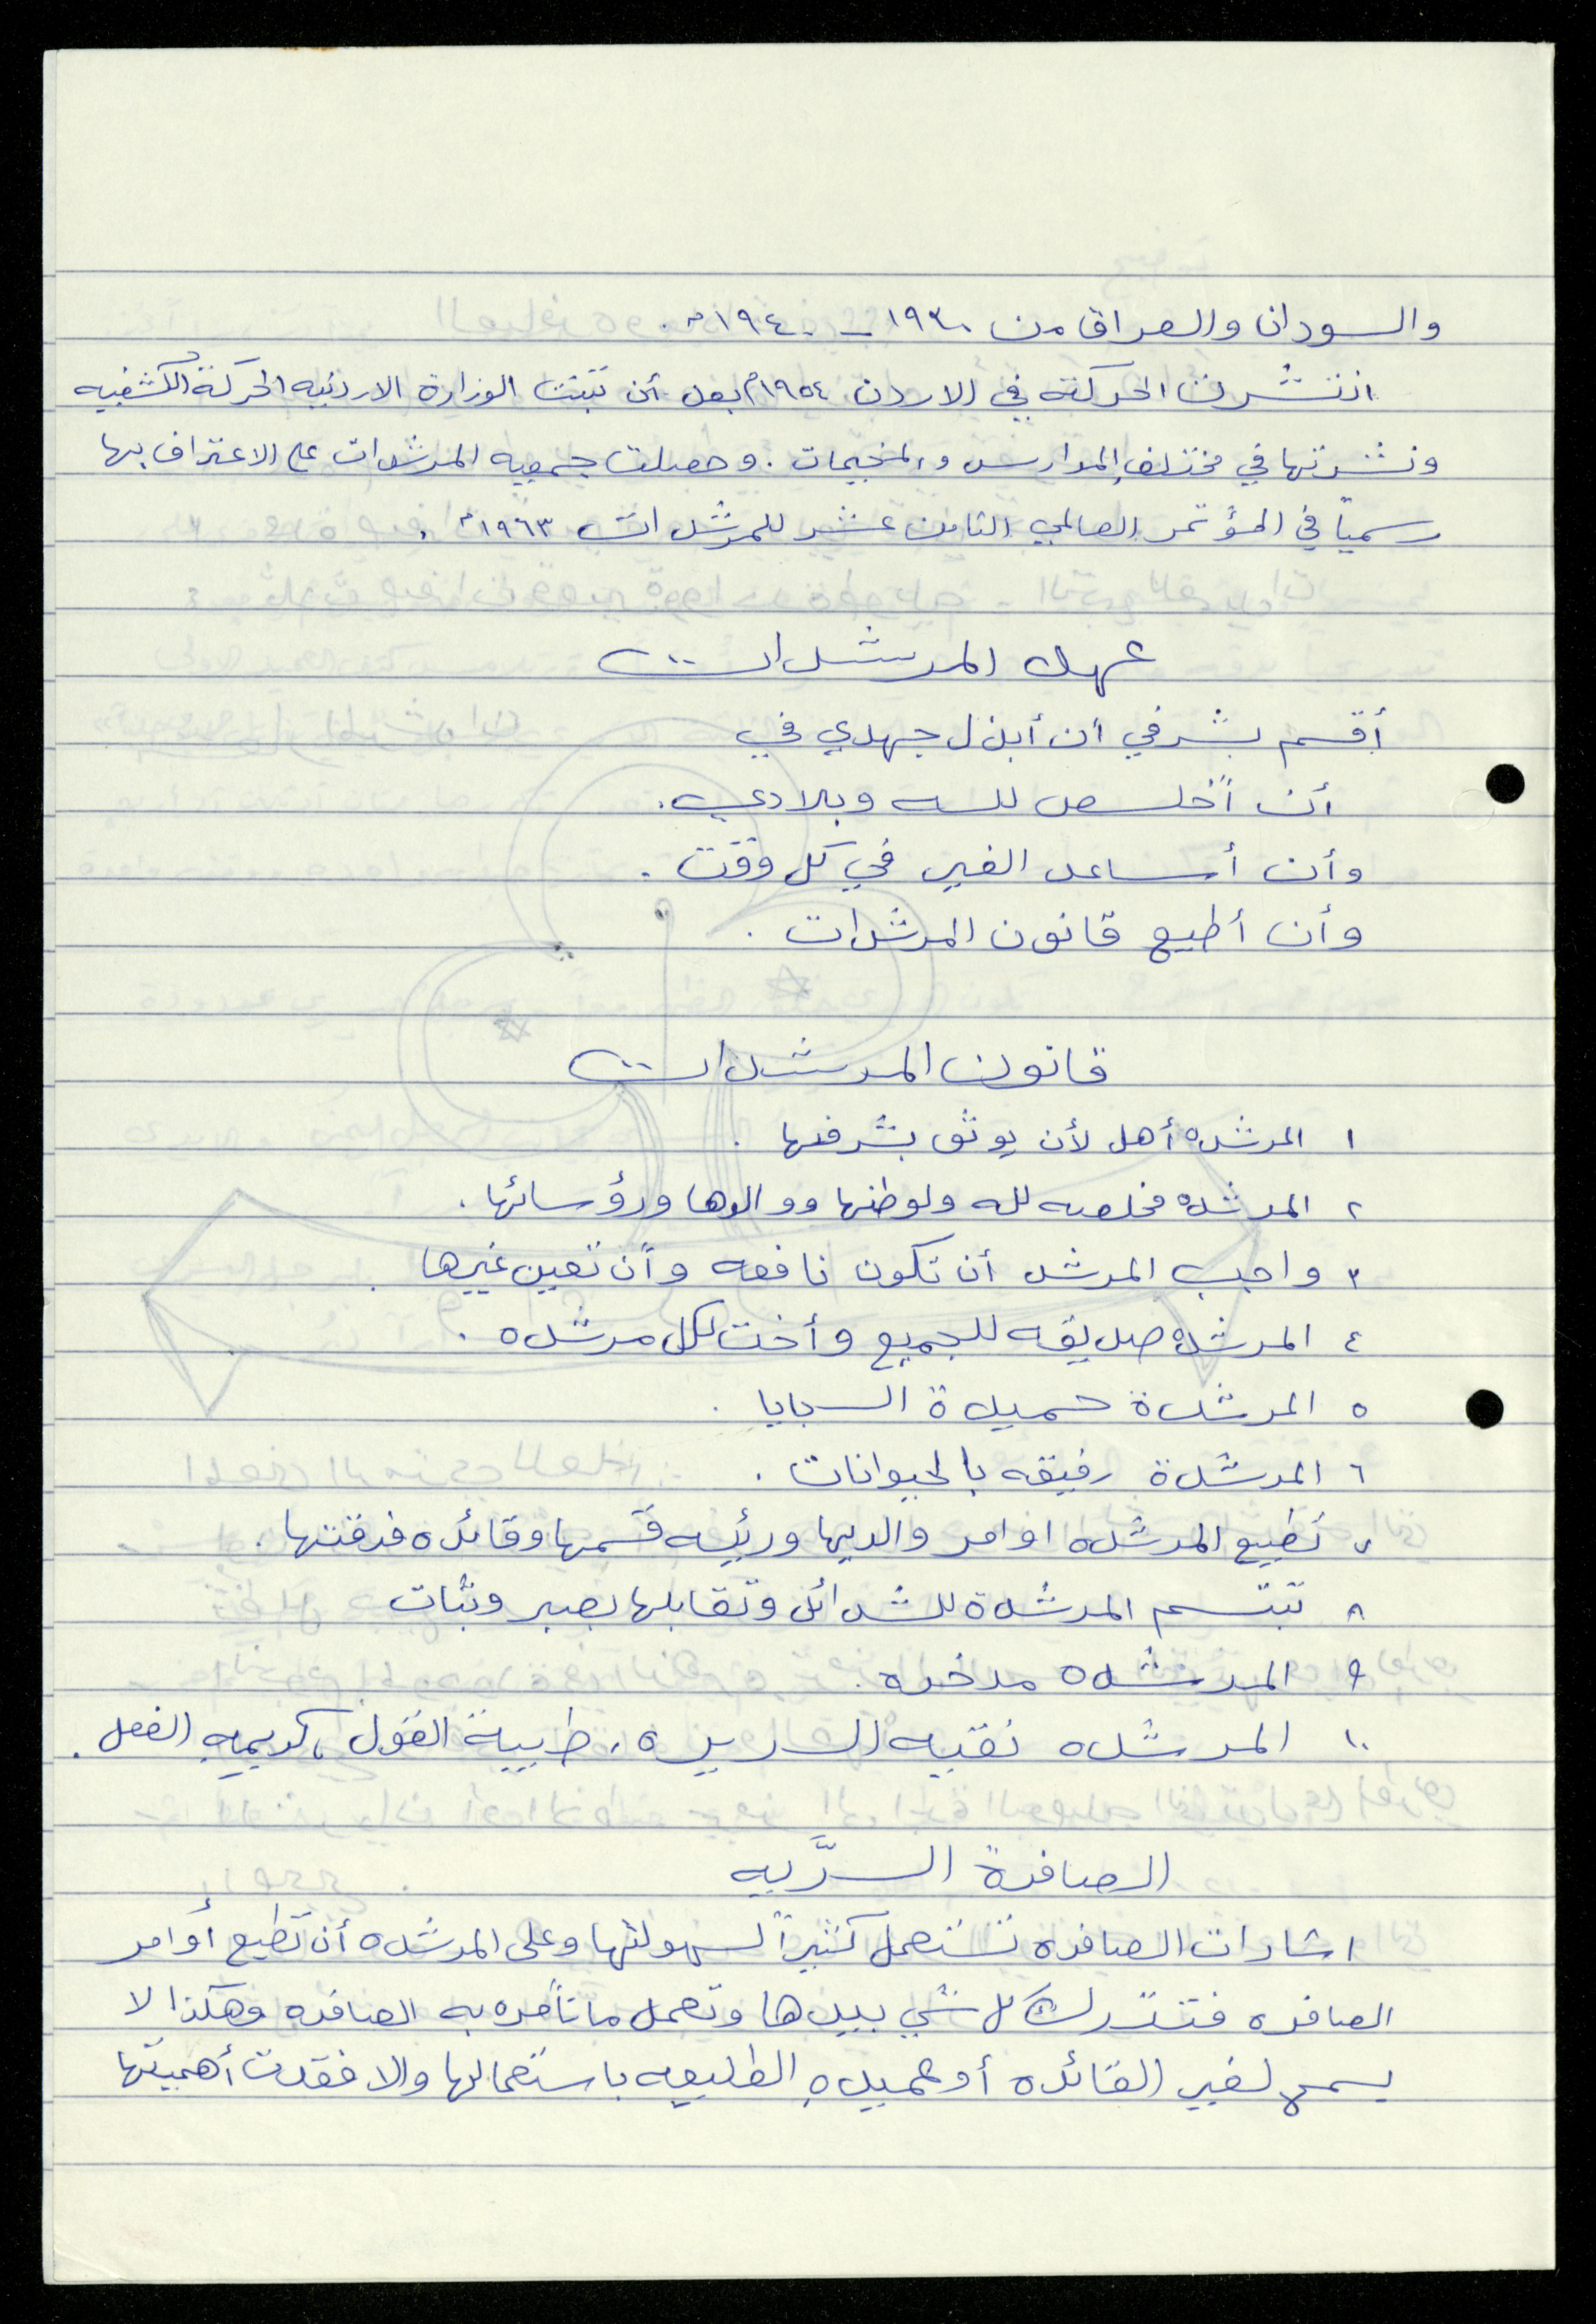 والسودان والعراق من ١٩٣٠ - ١٩٤٠م.
انتشرت الحركة في الاردن ١٩٥٤م بعد أن تبنت الوزارة الاردنيه الحركة الكشفيه
ونشرتها في مختلف المدارس والمخيمات . وحصلت جمعيه المرشدات على الاعتراف بها
رسمياً في المؤتمر العالمي الثامن عشر للمرشدات ١٩٦٣م .
عهد المرشدات
أقسم بشرفي أن أبذل جهدي في
أن أخلص لله وبلادي.
وأن أساعد الغير في كل وقت .
وأن أطيع قانون المرشدات .
قانون المرشدات
١ المرشده أهل لأن يوثق بشرفها .
٢ المرشده مخلصه لله ولوطنها ووالدها ورؤسائها .
٣ واجب المرشد أن تكون نافعه وأن تعين غيرها .
٤ المرشده صديقه للجميع وأخت لكل مرشده .
٥ المرشدة حميدة السجايا .
٦ المرشدة رفيقه بالحيوانات .
٧ تطيع المرشده اوامر والديها ورئيسه قسمها وقائده فرقتها .
٨ تبتسم المرشدة للشدائد وتقابلها بصبر وثبات
٩ المرشده مدخره .
١٠ المرشده نقيه السريره ، طيبة القول ، كريميه الفعل .
الصافرة السرَّيه
اشارات الصافره تستعمل كثيراً لسهولتها وعلى المرشده أن تطيع أوامر
الصافره فتترك كل شي بيدها وتعمل ما تأمره به الصافره وهكذا لا
يسمح لغير القائده أو عميده الطليعه باستعمالها والا فقدت أهميتها